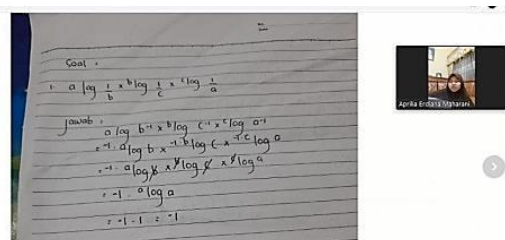 Soal :
1. a log 1/b x ᵇlog 1/c x ᶜlog 1/a
Jawab :
a log b⁻¹ x ᵇlog c⁻¹ x ᶜlog a⁻¹
= -1 . ᵃlog b x -1 . ᵇlog c x -1 . ᶜlog a
= -1 . ᵃlog b x ᵇlog c x ᶜlog a
= -1 . ᵃlog a
= -1 . 1 = -1
Aprilia Erdiana Maharani